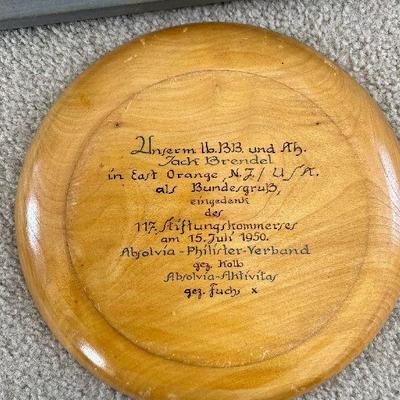 Unserm lb. BB. und Ah.
Jack Brendel
in East Orange, N.J./USA.
als Bundesgruß,
eingedenk
des
117. Stiftungskommerses
am 15. Juli 1950.
Absolvia-Philister-Verband
gez. Kolb
Absolvia-Aktivitas
gez. Fuchs x